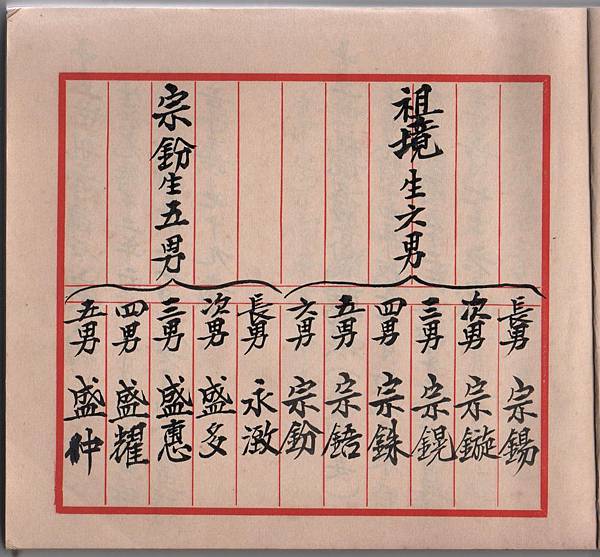 祖境生六男
長男 宗錫
次男 宗鏇
三男 宗鎤
四男 宗銖
五男 宗鋙
六男 宗鈖
宗鈖生五男
長男 永激
次男 盛多
三男 盛惠
四男 盛耀
五男 盛冲